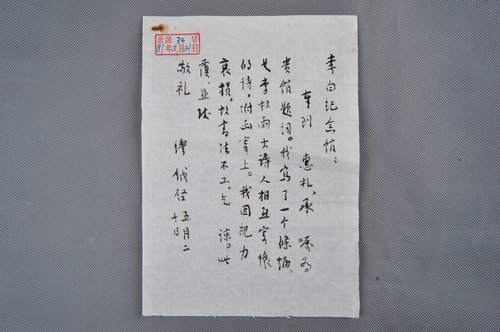 李白纪念馆：
奉到 惠札，承 嘱为
贵馆题词。我写了一个条幅，
是李杜两大诗人相互寄怀
的诗，附函奉上。我因视力
衰损，故书法不工，乞 谅。此
复，并致
敬礼
缪钺启 五月二
十日
收第34号
81年5月21日